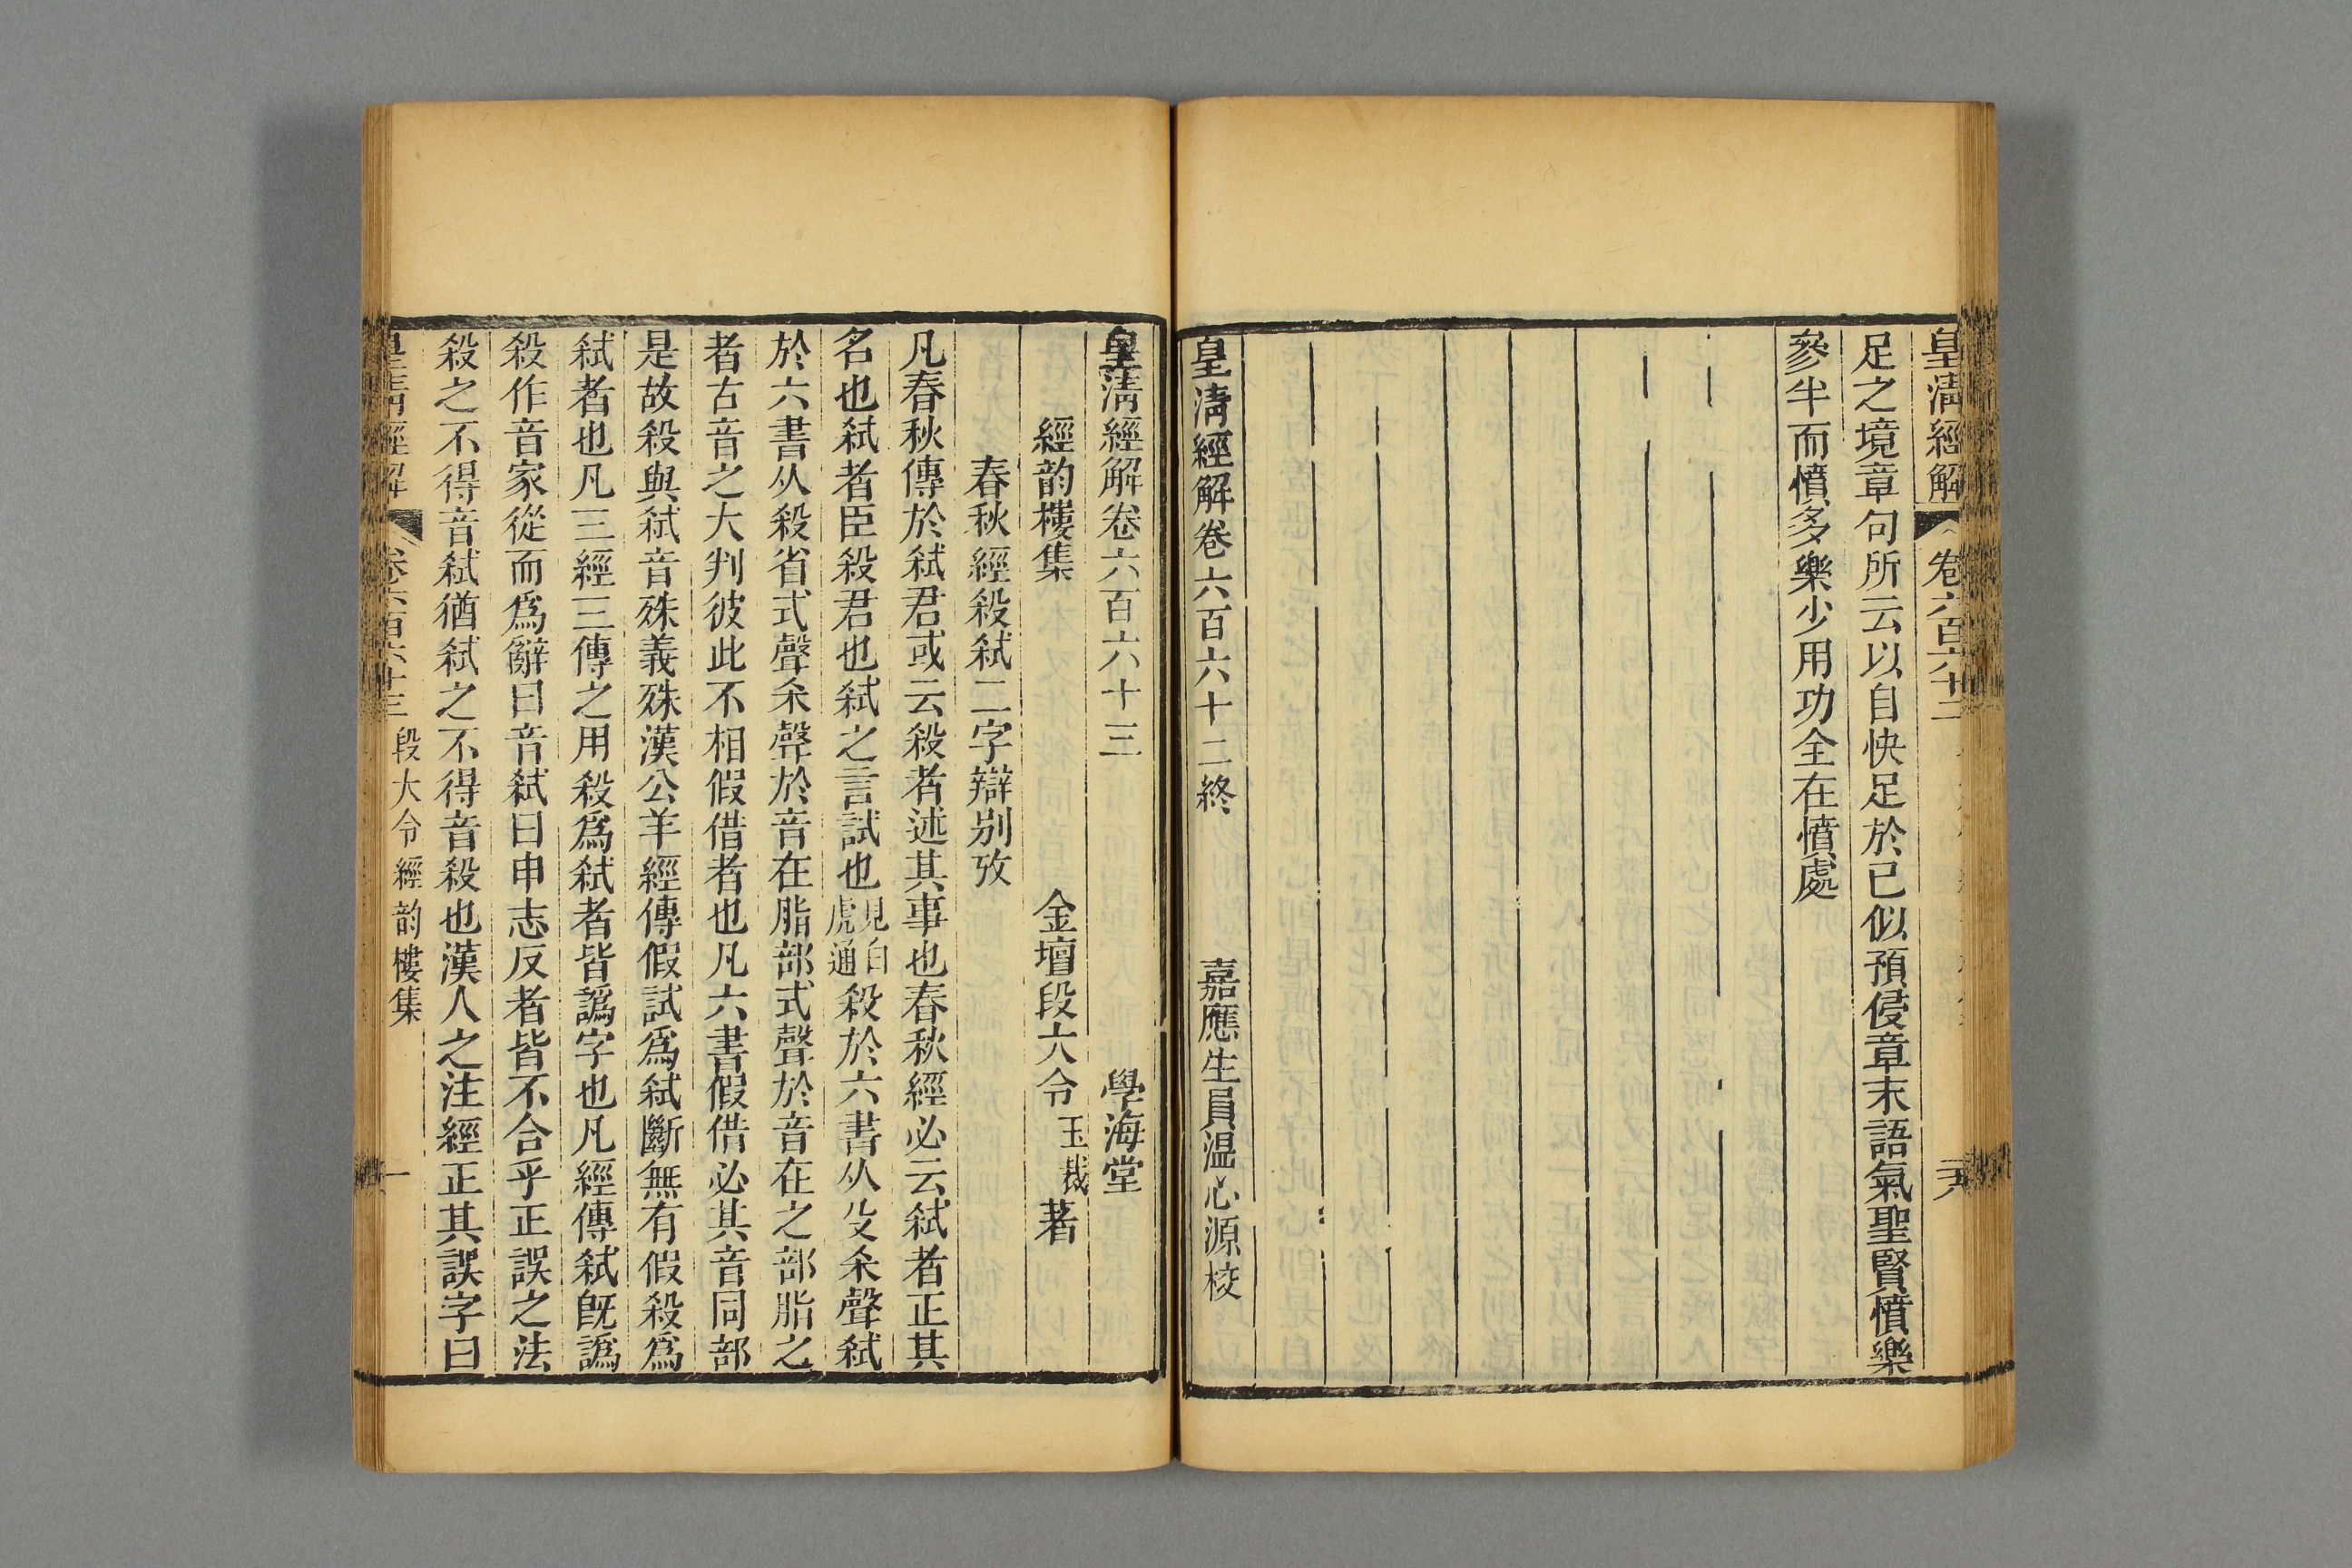 皇清經解
卷六百六十二
六
足之境章句所云以自快足於已似預侵章末語氣聖賢憤樂
參半而憤多樂少用功全在憤處
皇清經解卷六百六十二終
嘉應生員温心源校
皇清經解卷六百六十三
學海堂
經韵樓集
金壇段大令玉裁著
春秋經殺弑二字辯别攷
凡春秋傳於弑君或云殺者述其事也春秋經必云弑者正其
名也弑者臣殺君也弑之言試也見白虎通殺於六書从殳杀聲弑
於六書从殺省式聲杀聲於音在脂部式聲於音在之部脂之
者古音之大判彼此不相假借者也凡六書假借必其音同部
是故殺與弑音殊義殊漢公羊經傳假試爲弑斷無有假殺爲
弑者也凡三經三傳之用殺爲弑者皆譌字也凡經傳弑旣譌
殺作音家從而爲辭曰音弑曰申志反者皆不合乎正誤之法
殺之不得音弑猶弑之不得音殺也漢人之注經正其誤字曰
皇清經解
卷六百六十三
段大令經韵樓集
一